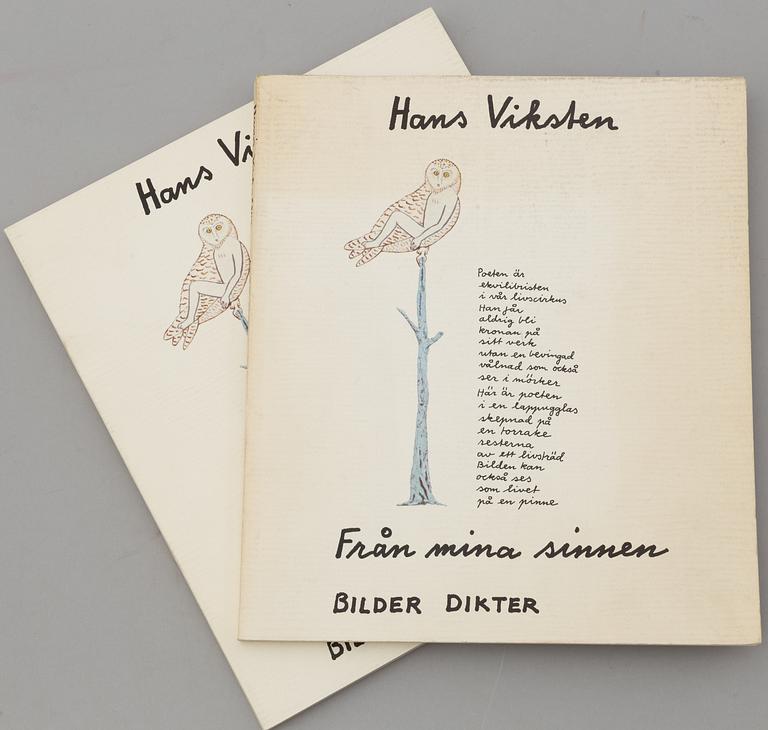 Hans Viksten
Poeten är
ekvilibristen
i vår livscirkus
Han får
aldrig bli
kronan på
sitt verk
utan en bevingad
vålnad som också
ser i mörker
Här är poeten
i en lappugglas
skepnad på
en torrake
resterna
av ett livsträd
Bilden kan
också ses
som livet
på en pinne
Från mina sinnen
BILDER DIKTER
Hans Vi
BIL